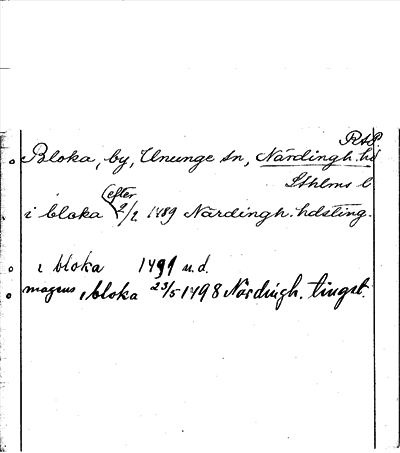 RAP.
Bloka, by, Ununge sn, Närdingh. hd
Sthlms l
(efter
i bloka 2/2 1489 Närdingh. hdsting.
i bloka 1491 u.d.
magnus i bloka 23/5 1498 Närdingh. tingst.